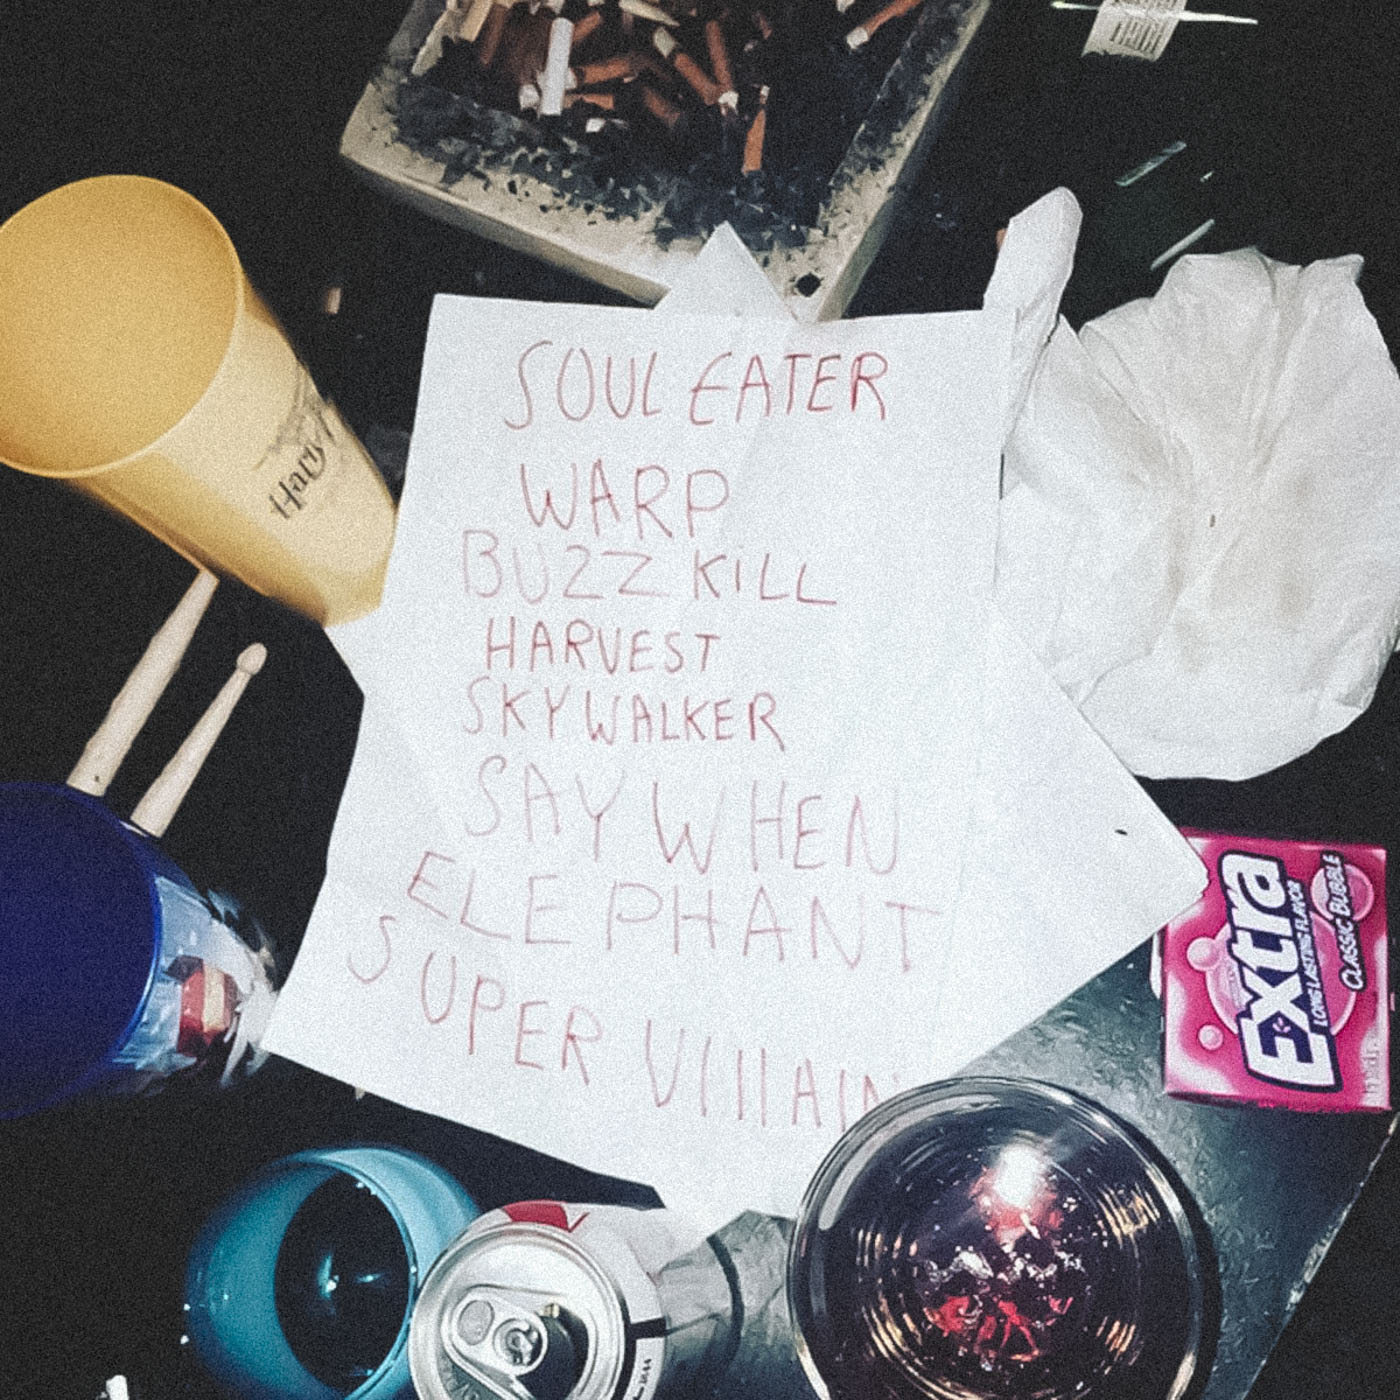 SOUL EATER
WARP
BUZZ KiLL
HARVEST
SKYWALKER
SAY WHEN
ELEPHANT
SUPER VIllAIN
Extra
LONG LASTING FLAVOR
CLASSIC BUBBLE